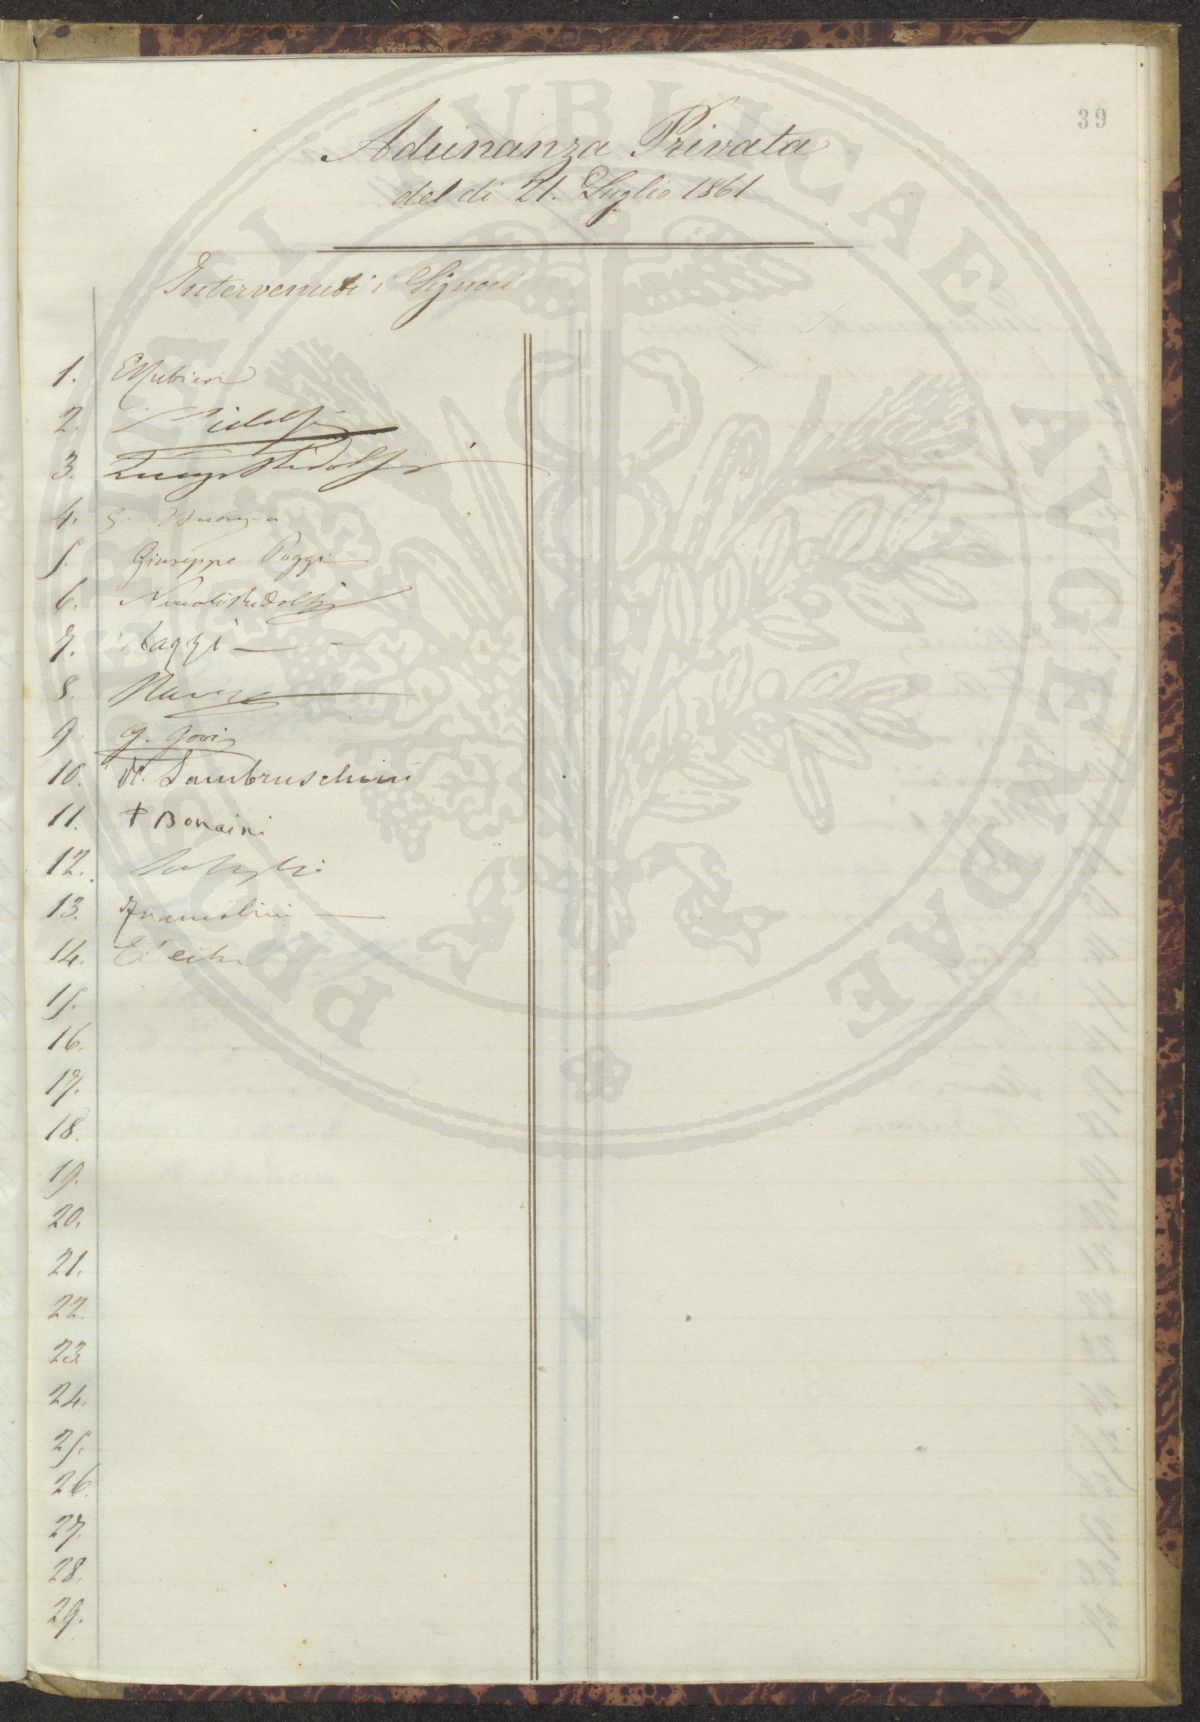 39
Adunanza Privata
del dì 21. Luglio 1861
Intervenuti i Signori
1. ERubieri
2. Ridolfi
3. Luigi Ridolfi
4.
5. Giuseppe Poggi
6. Niccolò Ridolfi
7.
8.
9. G. Govi
10. R. Lambruschini
11. F Bonaini
12.
13. Franceschini
14.
15.
16.
17.
18.
19.
20.
21.
22.
23
24.
25.
26.
27.
28.
29.
PROSPERITATI PVBLICAE AVGENDAE